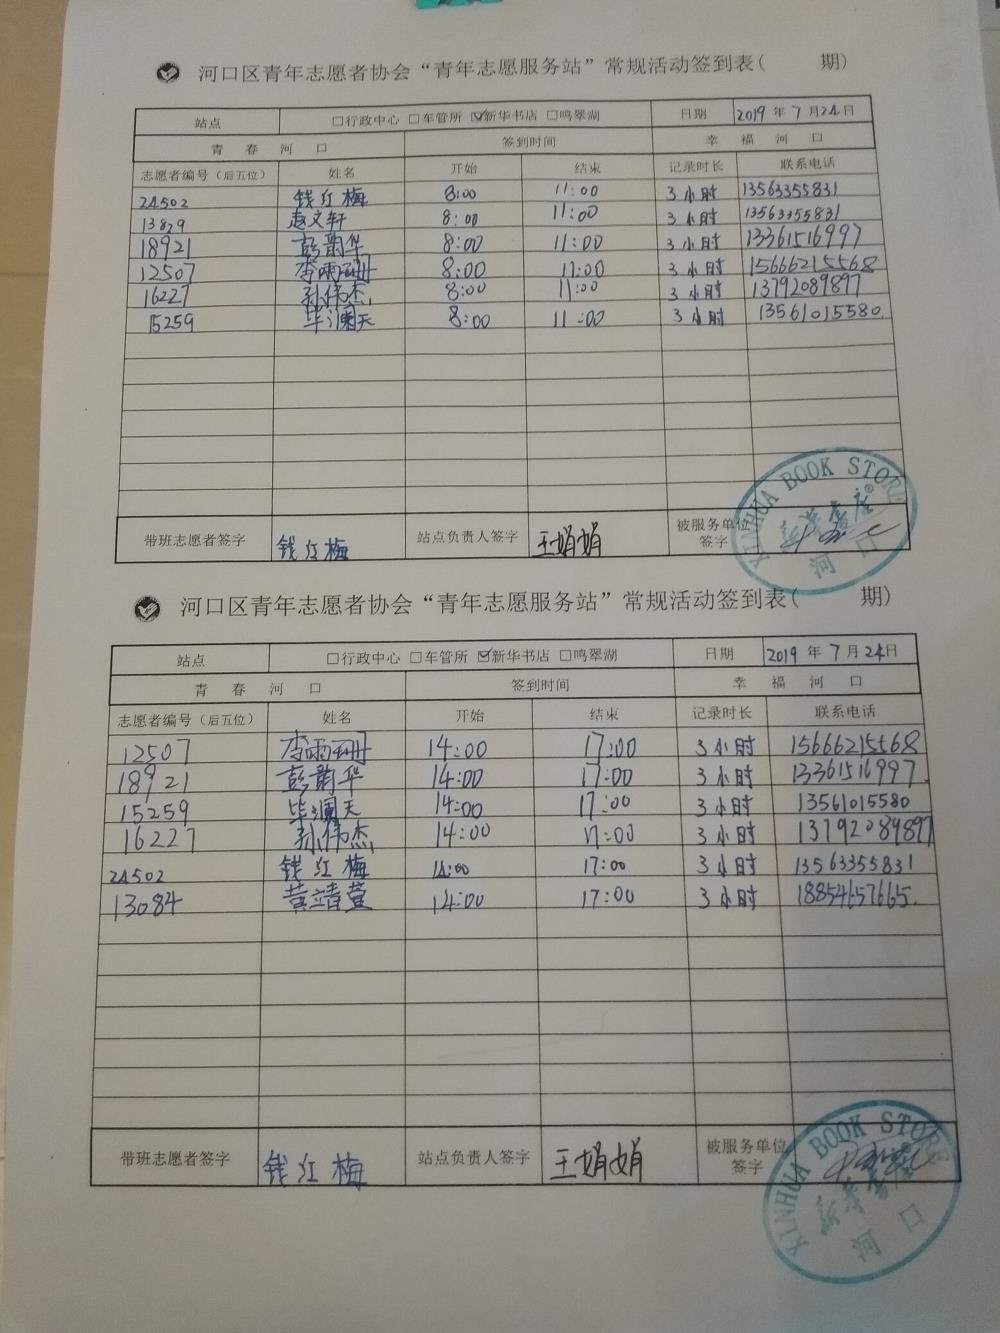 河口区青年志愿者协会“青年志愿服务站”常规活动签到表( 期)
站点 □行政中心 □车管所 ☑新华书店 □鸣翠湖 日期 2019 年 7 月 24 日
青 春 河 口 签到时间 幸 福 河 口
志愿者编号(后五位) 姓名 开始 结束 记录时长 联系电话
24502 钱红梅 8:00 11:00 3小时 13563355831
13829 赵文轩 8:00 11:00 3小时 13563355831
18921 彭韵华 8:00 11:00 3小时 13361516997
12507 李雨珊 8:00 11:00 3小时 15666215568
16227 孙伟杰 8:00 11:00 3小时 13792089897
15259 毕澜天 8:00 11:00 3小时 13561015580
带班志愿者签字 钱红梅 站点负责人签字 王娟娟 被服务单位签字
XINHUA BOOK STORE
新华书店
河口
河口区青年志愿者协会“青年志愿服务站”常规活动签到表( 期)
站点 □行政中心 □车管所 ☑新华书店 □鸣翠湖 日期 2019 年 7 月 24 日
青 春 河 口 签到时间 幸 福 河 口
志愿者编号(后五位) 姓名 开始 结束 记录时长 联系电话
12507 李雨珊 14:00 17:00 3小时 15666215568
18921 彭韵华 14:00 17:00 3小时 13361516997
15259 毕澜天 14:00 17:00 3小时 13561015580
16227 孙伟杰 14:00 17:00 3小时 13792089897
24502 钱红梅 14:00 17:00 3小时 13563355831
13084 黄靖萱 14:00 17:00 3小时 18854657665
带班志愿者签字 钱红梅 站点负责人签字 王娟娟 被服务单位签字
XINHUA BOOK STORE
新华书店
河口